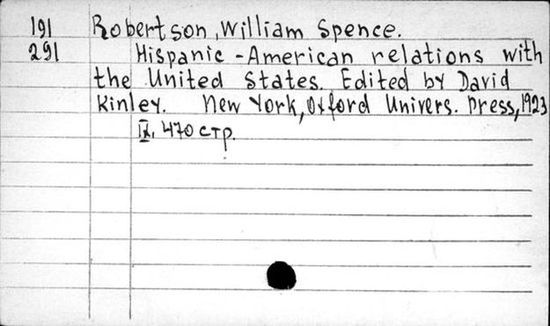 191 Robertson, William Spence.
291 Hispanic-American relations with
the United States. Edited by David
Kinley. New York, Oxford Univers. Press, 1923
IX, 470 стр.